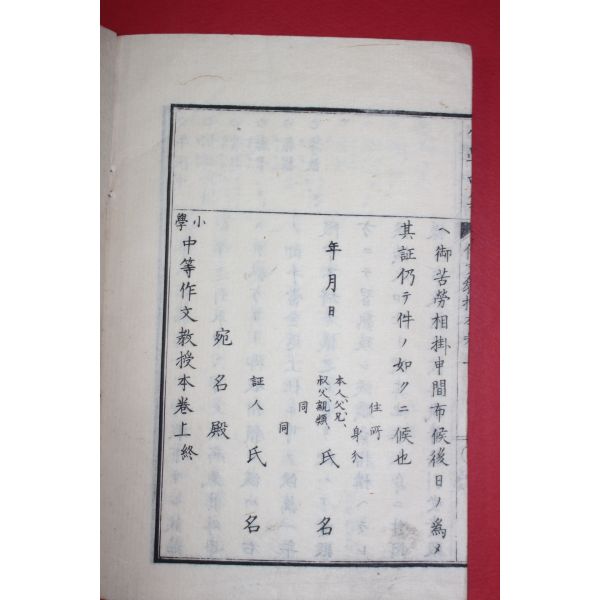 ヘ御苦勞相掛申間布候後日ノ爲メ
其証仍テ件ノ如クニ候也
住所
身分
年月日
本人父兄、
叔父親類
氏名
同
同
証人氏名
宛名殿
小學中等作文教授本卷上終